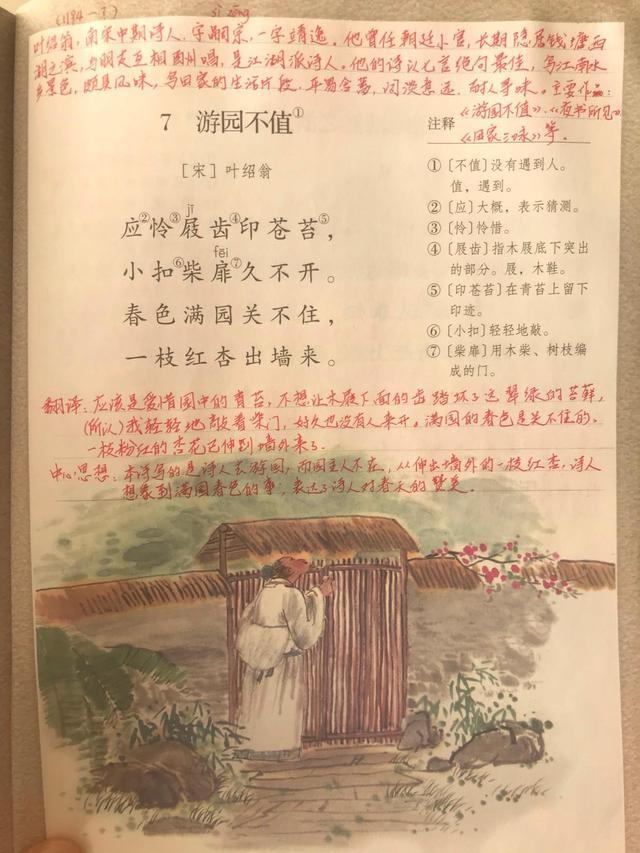 (1194-?) sì zōng
叶绍翁，南宋中期诗人，字嗣宗，一字靖逸。他曾任朝廷小官，长期隐居钱塘西
湖之滨，与朋友互相酬唱，是江湖派诗人。他的诗以七言绝句最佳，写江南水
乡景色，颇具风味，写田家的生活片段，平易含蓄，闲淡意远，耐人寻味。主要作品：
《游园不值》、《夜书所见》
《田家三咏》等。
7 游园不值①
［宋］叶绍翁
jī
应②怜③屐齿④印苍苔⑤，
fēi
小扣⑥柴扉⑦久不开。
春色满园关不住，
一枝红杏出墙来。
注释
①〔不值〕没有遇到人。
值，遇到。
②〔应〕大概，表示猜测。
③〔怜〕怜惜。
④〔屐齿〕指木屐底下突出
的部分。屐，木鞋。
⑤〔印苍苔〕在青苔上留下
印迹。
⑥〔小扣〕轻轻地敲。
⑦〔柴扉〕用木柴、树枝编
成的门。
翻译：应该是爱惜园中的青苔，不想让木屐下面的齿踏坏了这翠绿的苔藓，
(所以)我轻轻地敲着柴门，好久也没有人来开。满园的春色是关不住的，
一枝粉红的杏花已伸到墙外来了。
中心思想：本诗写的是诗人去游园，而园主人不在，从伸出墙外的一枝红杏，诗人
想象到满园春色的事；表达了诗人对春天的赞美。